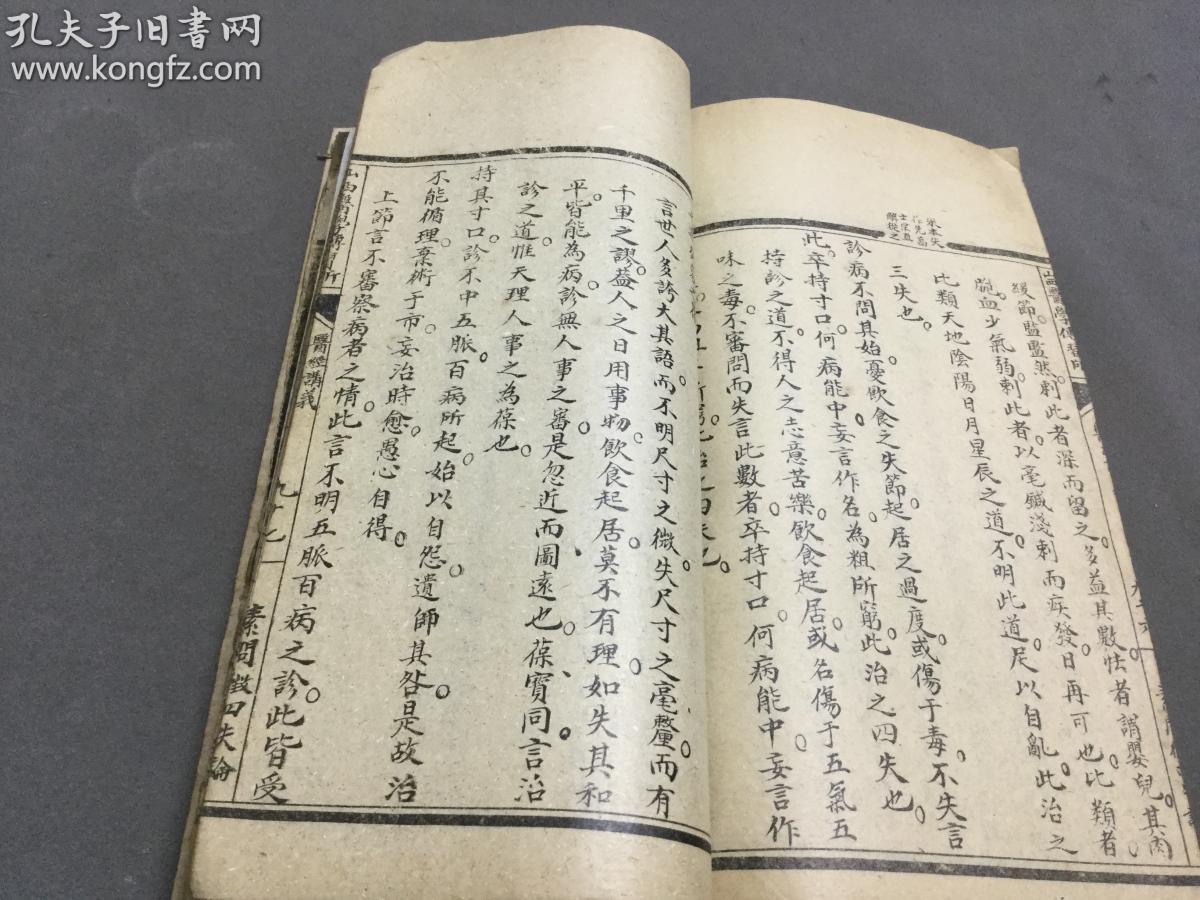 孔夫子旧书网
www.kongfz.com
緩節監監然刺此者深而留之多益其數怯者謂嬰兒其肉
脆血少氣弱刺此者以毫鍼淺刺而疾發日再可也比類者
比類天地陰陽日月星辰之道不明此道足以自亂此治之
三失也
診病不問其始憂飲食之失節起居之過度或傷于毒不失言
此卒持寸口何病能中妄言作名為粗所窮此治之四失也
持診之道不得人之志意苦樂飲食起居或名傷于五氣五
味之毒不審問而失言此數者卒持寸口何病能中妄言作
言世人多誇大其語而不明尺寸之微失尺寸之毫釐而有
千里之謬益人之日用事物飲食起居莫不有理如失其和
平皆能為病診無人事之審是忽近而圖遠也葆寶同言治
診之道惟天理人事之為葆也
持其寸口診不中五脈百病所起始以自怨遺師其咎是故治
不能循理棄術于市妄治時愈愚心自得
上節言不審察病者之情此言不明五脈百病之診此皆受
醫經講義
九十七
素問徵四失論